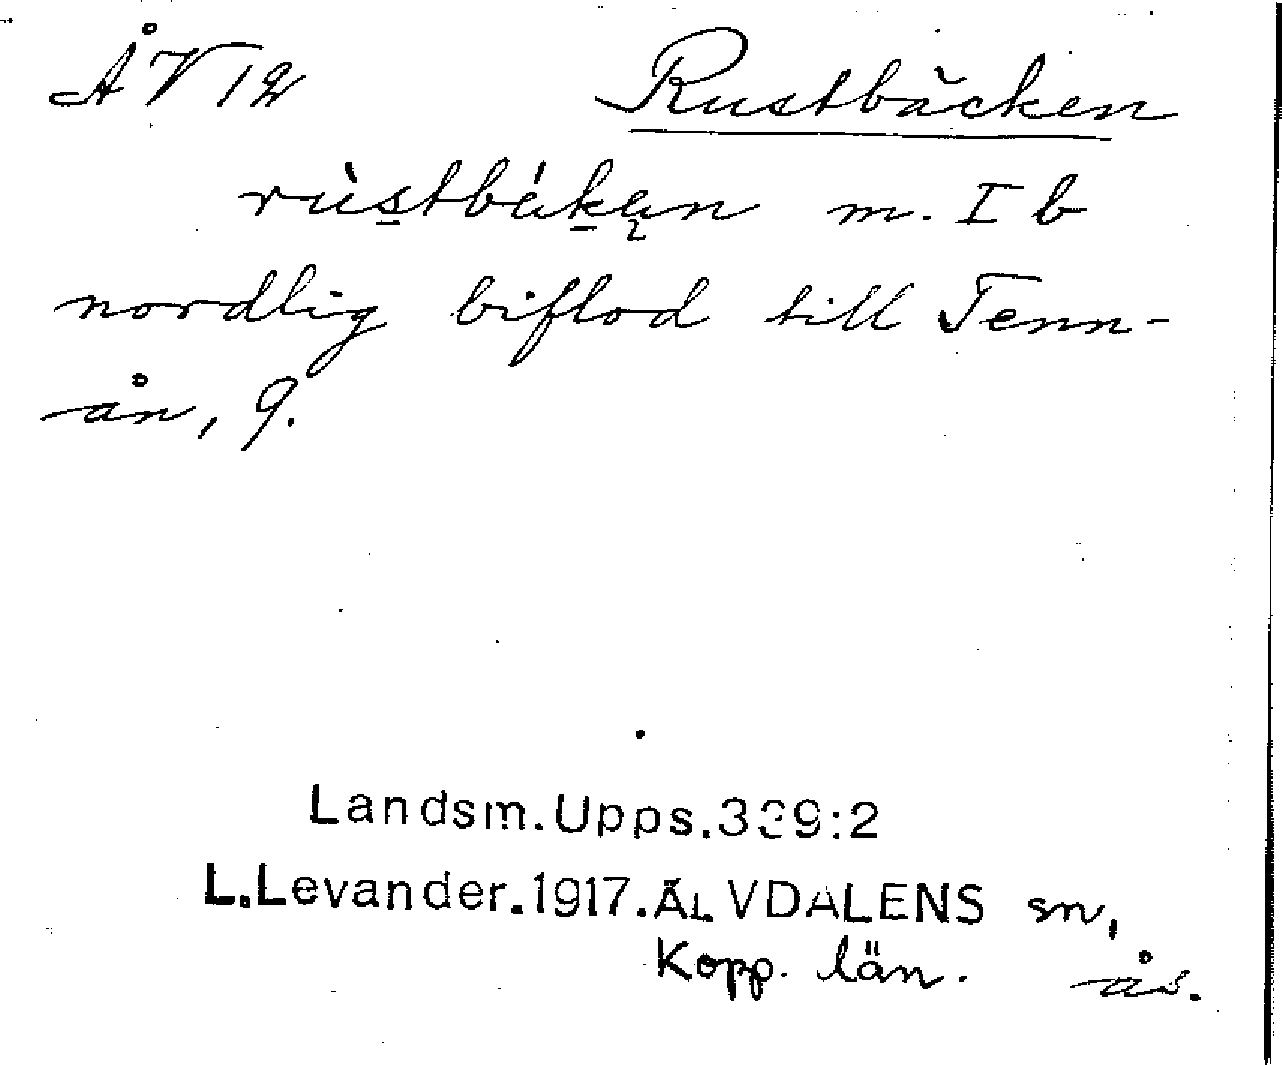 ÅV 12 Rustbäcken
rùstbäkęn m. I b
nordlig biflod till Tenn-
ån, 9.
Landsm.Upps.339:2
L.Levander.1917.ÄLVDALENS sn,
Kopp. län. ås.